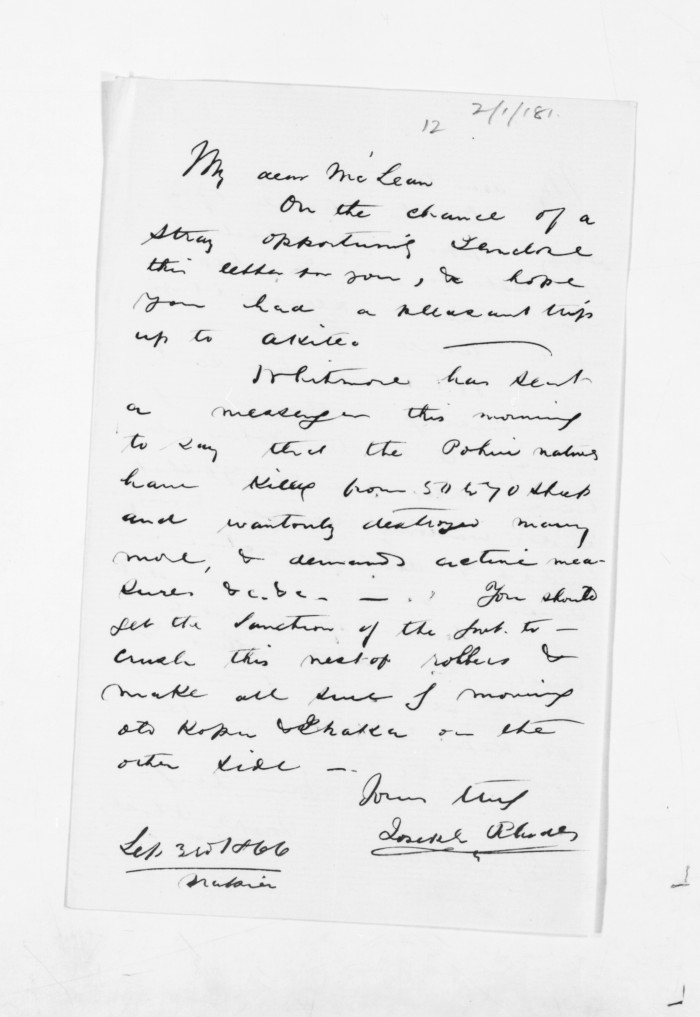 12 2/1/181.
My dear McLean
On the chance of a
stray opportunity I enclose
this letter for you, & hope
you had a pleasant trip
up to Akiteo
Whitmore has sent
a messenger this morning
to say that the Pohui natives
have killed from 50 to 70 sheep
and wantonly destroyed many
more, & demands active mea-
sures &c. &c. — . You should
get the sanction of the Govt. to —
crush this nest of robbers &
make all sure of moving
Kopu & Ihaka on the
other side —.
Yours truly
Joseph Rhodes
Sep. 3rd 1866
Napier